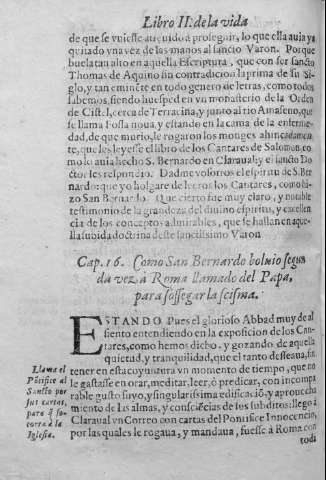 Libro II. de la vida
de que se vuiesse atreuido a proseguir, lo que ella auia ya
quitado vna vez de las manos al sancto Varon. Porque
buela tan alto en aquella Escriptura, que con ser sancto
Thomas de Aquino sin contradicion la prima de su Si-
glo, y tan eminẽte en todo genero de letras, como todos
sabemos, siendo huesped en vn monasterio de la Orden
de Cistel, cerca de Terracina, y junto al rio Amaseno, que
se llama Fossa noua, y estando en la cama de la enferme-
dad, de que murio, le rogaron los monges ahincadamen-
te, que les leyesse el libro de los Cantares de Salomon, co-
mo lo auia hecho S. Bernardo en Claraual: y el sancto Do-
ctor les respondio. Dadme vosotros el espiritu de S. Ber-
nardo: que yo holgare de leeros los Cantares, como hi-
zo San Bernardo. Que cierto fue muy claro, y notable
testimonio de la grandeza del diuino espiritu, y excellen
cia de los conceptos admirables, que se hallan en aque-
lla subida doctrina deste sanctissimo Varon.
Cap. 16. Como San Bernardo boluio segun
da vez à Roma llamado del Papa,
para sossegar la scisma.
ESTANDO Pues el glorioso Abbad muy de al
siento entendiendo en la exposicion de los Can-
tares, como hemos dicho. y gozando de aquella
quietud, y tranquilidad, que el tanto desseaua, sin
tener en esta coyuntura vn momento de tiempo, que no
le gastasse en orar, meditar, leer, ò predicar, con incompa
rable gusto suyo, y singularissima edificaciõ, y aprouecha
miento de las almas, y consciẽcias de los subditos: llego à
Claraual vn Correo con cartas del Pontifice Innocencio,
por las quales le rogaua, y mandaua, fuesse à Roma con
toda
Llama el
Põtifice al
Sancto por
sus cartas,
para q̃ so-
corra à la
Iglesia.